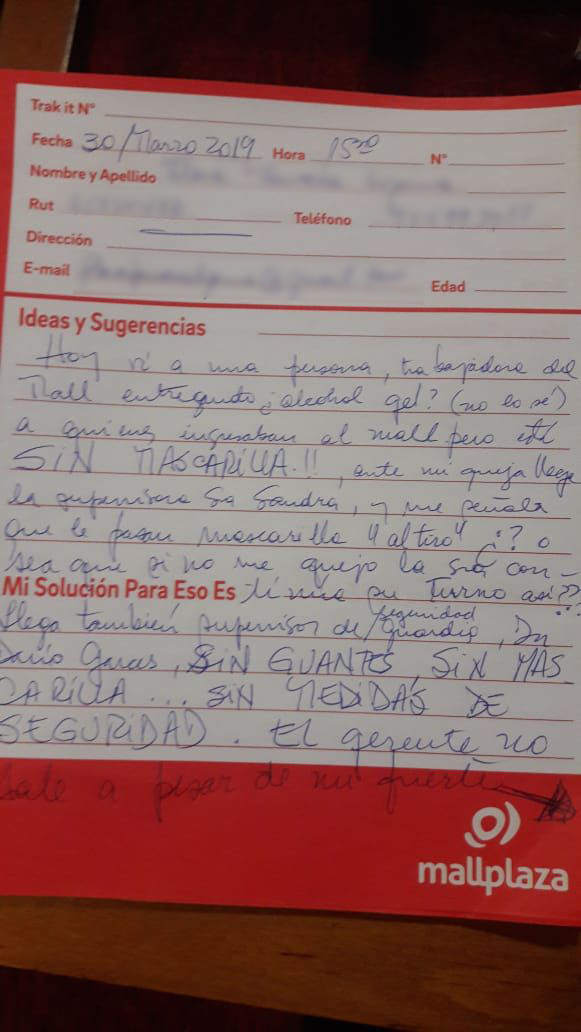 Trak it N°
Fecha 30/Marzo 2019 Hora 15:00 N°
Nombre y Apellido
Rut Teléfono
Dirección
E-mail Edad
Ideas y Sugerencias
Hoy vi a una persona, trabajadora del
Mall entregando ¿alcohol gel? (no lo sé)
a quienes ingresaban al mall pero está
SIN MASCARILLA!!, ante mi queja llega
la supervisora Sra Sandra, y me señala
que le pasan mascarilla "al tiro" ¿? o
sea que si no me quejo la sra con-
Mi Solución Para Eso Es tinúa su Turno así??
seguridad
Llega también supervisor de / Guardia, Dn
Darío SIN GUANTES, SIN MAS
CARILLA ... SIN MEDIDAS DE
SEGURIDAD. El gerente no
sale a pesar de mi
mallplaza